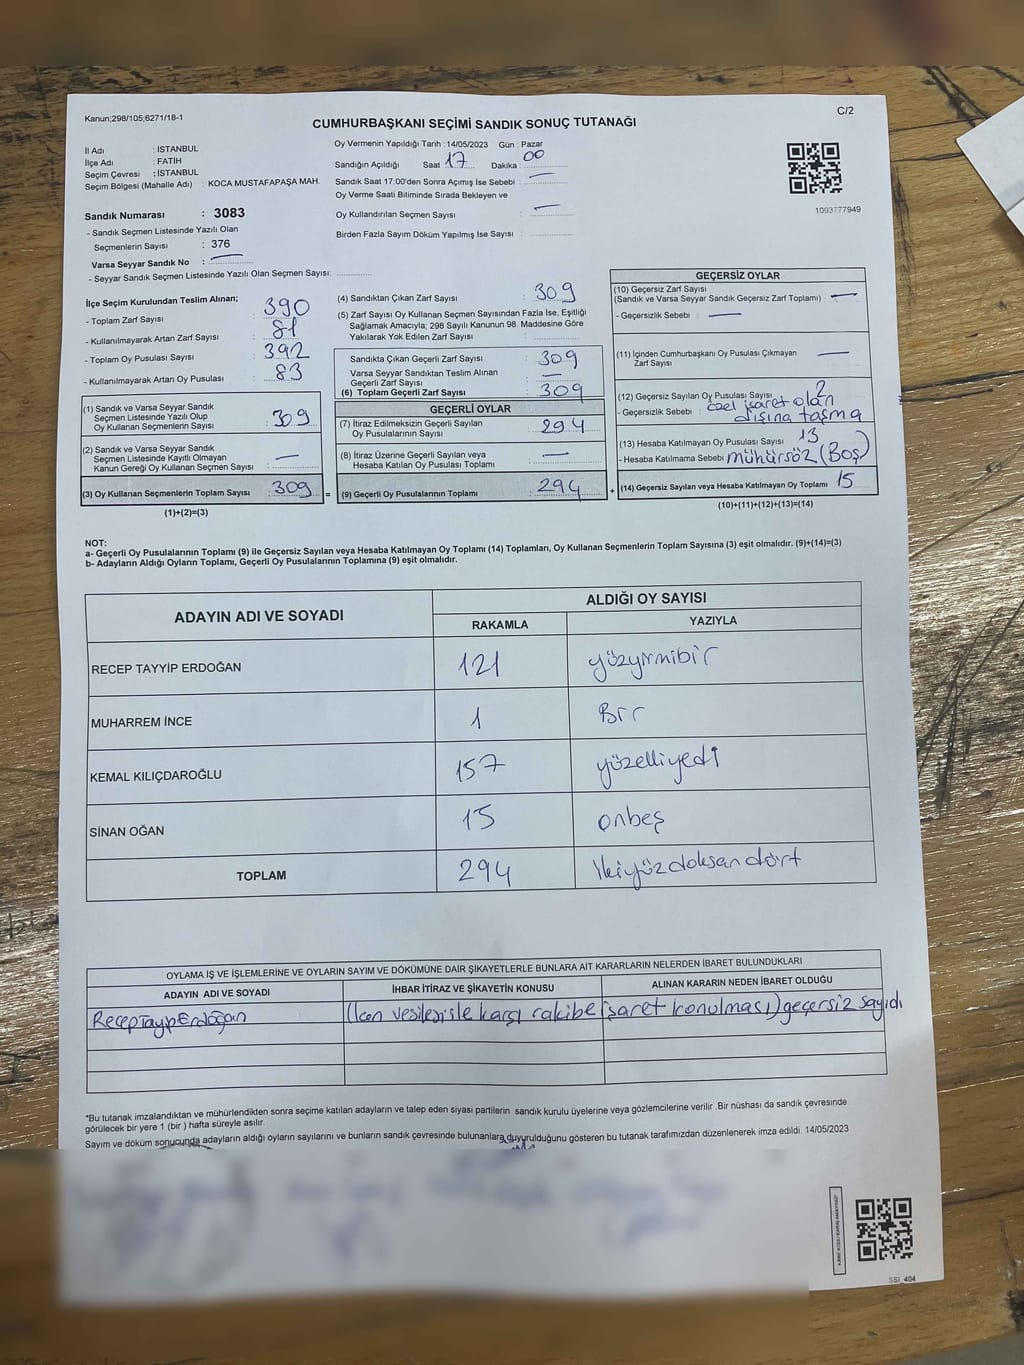 Kanun;298/105;6271/18-1
C/2
CUMHURBAŞKANI SEÇİMİ SANDIK SONUÇ TUTANAĞI
İl Adı : İSTANBUL
İlçe Adı : FATİH
Seçim Çevresi : İSTANBUL
Seçim Bölgesi (Mahalle Adı) : KOCA MUSTAFAPAŞA MAH.
Sandık Numarası : 3083
- Sandık Seçmen Listesinde Yazılı Olan
Seçmenlerin Sayısı : 376
Varsa Seyyar Sandık No : —
- Seyyar Sandık Seçmen Listesinde Yazılı Olan Seçmen Sayısı:
Oy Vermenin Yapıldığı Tarih : 14/05/2023 Gün : Pazar
Sandığın Açıldığı Saat 17 Dakika : 00
Sandık Saat 17.00'den Sonra Açımış İse Sebebi : —
Oy Verme Saati Bitiminde Sırada Bekleyen ve
Oy Kullandırılan Seçmen Sayısı : —
Birden Fazla Sayım Döküm Yapılmış İse Sayısı :
1093777949
İlçe Seçim Kurulundan Teslim Alınan;
- Toplam Zarf Sayısı : 390
- Kullanılmayarak Artan Zarf Sayısı : 81
- Toplam Oy Pusulası Sayısı : 392
- Kullanılmayarak Artan Oy Pusulası : 83
(1) Sandık ve Varsa Seyyar Sandık
Seçmen Listesinde Yazılı Olup
Oy Kullanan Seçmenlerin Sayısı : 309
(2) Sandık ve Varsa Seyyar Sandık
Seçmen Listesinde Kayıtlı Olmayan
Kanun Gereği Oy Kullanan Seçmen Sayısı : —
(3) Oy Kullanan Seçmenlerin Toplam Sayısı : 309 =
(1)+(2)=(3)
(4) Sandıktan Çıkan Zarf Sayısı : 309
(5) Zarf Sayısı Oy Kullanan Seçmen Sayısından Fazla İse, Eşitliği
Sağlamak Amacıyla; 298 Sayılı Kanunun 98. Maddesine Göre
Yakılarak Yok Edilen Zarf Sayısı :
Sandıkta Çıkan Geçerli Zarf Sayısı : 309
Varsa Seyyar Sandıktan Teslim Alınan
Geçerli Zarf Sayısı : —
(6) Toplam Geçerli Zarf Sayısı : 309
GEÇERLİ OYLAR
(7) İtiraz Edilmeksizin Geçerli Sayılan
Oy Pusulalarının Sayısı : 294
(8) İtiraz Üzerine Geçerli Sayılan veya
Hesaba Katılan Oy Pusulası Toplamı : —
(9) Geçerli Oy Pusulalarının Toplamı : 294 +
GEÇERSİZ OYLAR
(10) Geçersiz Zarf Sayısı
(Sandık ve Varsa Seyyar Sandık Geçersiz Zarf Toplamı) : —
- Geçersizlik Sebebi : —
(11) İçinden Cumhurbaşkanı Oy Pusulası Çıkmayan
Zarf Sayısı : —
(12) Geçersiz Sayılan Oy Pusulası Sayısı : 2
- Geçersizlik Sebebi : özel işaret olan
dışına taşma
(13) Hesaba Katılmayan Oy Pusulası Sayısı : 13
- Hesaba Katılmama Sebebi : mühürsöz (Boş)
(14) Geçersiz Sayılan veya Hesaba Katılmayan Oy Toplamı : 15
(10)+(11)+(12)+(13)=(14)
NOT:
a- Geçerli Oy Pusulalarının Toplamı (9) ile Geçersiz Sayılan veya Hesaba Katılmayan Oy Toplamı (14) Toplamları, Oy Kullanan Seçmenlerin Toplam Sayısına (3) eşit olmalıdır. (9)+(14)=(3)
b- Adayların Aldığı Oyların Toplamı, Geçerli Oy Pusulalarının Toplamına (9) eşit olmalıdır.
ADAYIN ADI VE SOYADI ALDIĞI OY SAYISI
RAKAMLA YAZIYLA
RECEP TAYYİP ERDOĞAN 121 yüzyirmibir
MUHARREM İNCE 1 Bir
KEMAL KILIÇDAROĞLU 157 yüzelliyedi
SİNAN OĞAN 15 onbeş
TOPLAM 294 ikiyüzdoksandört
OYLAMA İŞ VE İŞLEMLERİNE VE OYLARIN SAYIM VE DÖKÜMÜNE DAİR ŞİKAYETLERLE BUNLARA AİT KARARLARIN NELERDEN İBARET BULUNDUKLARI
ADAYIN ADI VE SOYADI İHBAR İTİRAZ VE ŞİKAYETİN KONUSU ALINAN KARARIN NEDEN İBARET OLDUĞU
Recep Tayyip Erdoğan karşı rakibe işaret konulması) geçersiz sayıdı
*Bu tutanak imzalandıktan ve mühürlendikten sonra seçime katılan adayların ve talep eden siyasi partilerin sandık kurulu üyelerine veya gözlemcilerine verilir .Bir nüshası da sandık çevresinde
görülecek bir yere 1 (bir ) hafta süreyle asılır.
Sayım ve döküm sonucunda adayların aldığı oyların sayılarını ve bunların sandık çevresinde bulunanlara duyurulduğunu gösteren bu tutanak tarafımızdan düzenlenerek imza edildi. 14/05/2023
SSI_404